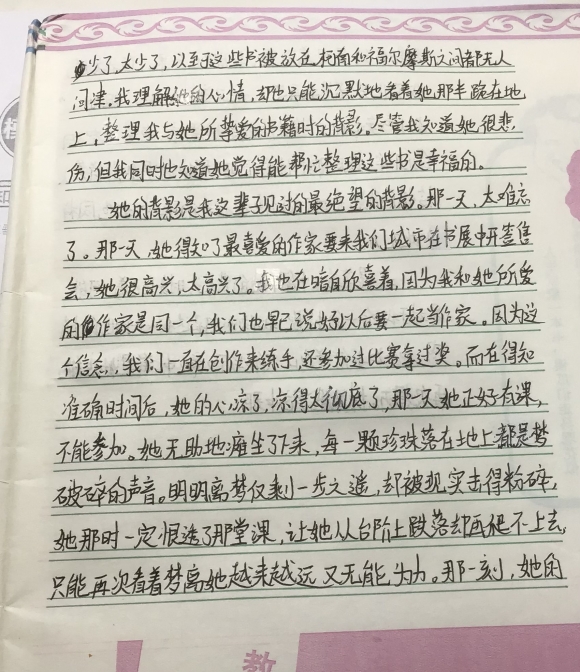 少了,太少了,以至于这些书被放在柯南和福尔摩斯之间都无人
问津。我理解她的心情,却也只能沉默地看着她那半跪在地
上,整理我与她所挚爱的书籍时的背影。尽管我知道她很悲
伤,但我同时也知道她觉得能帮忙整理这些书是幸福的。
她的背影是我这辈子见过的最绝望的背影。那一天,太难忘
了。那一天,她得知了最喜爱的作家要来我们城市在书展中开签售
会,她很高兴,太高兴了。我也在暗自欣喜着,因为我和她所爱
的作家是同一个,我们也早已说好以后要一起当作家。因为这
个信念,我们一直在创作来练手,还参加过比赛拿过奖。而在得知
准确时间后,她的心凉了,凉得太彻底了,那一天她正好有课,
不能参加。她无助地瘫坐了下来,每一颗珍珠落在地上都是梦
破碎的声音。明明离梦仅剩一步之遥,却被现实击得粉碎,
她那时一定恨透了那堂课,让她从台阶上跌落却再爬不上去,
只能再次看着梦离她越来越远又无能为力。那一刻,她的
教